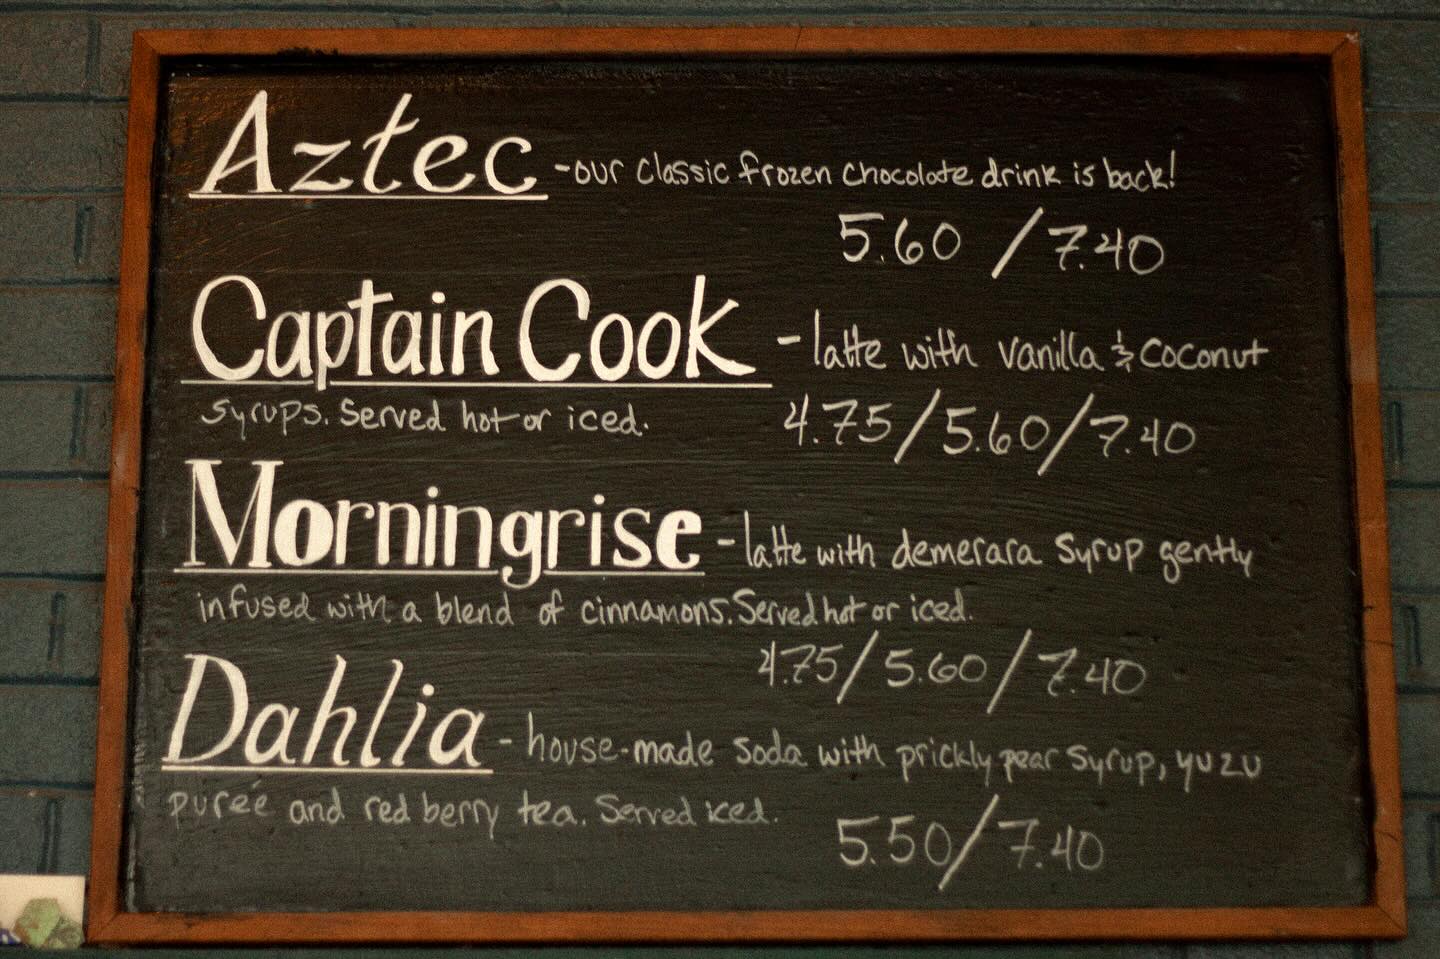 Aztec -our classic frozen chocolate drink is back!
5.60 / 7.40
Captain Cook -latte with vanilla & coconut
syrups. Served hot or iced. 4.75/5.60/7.40
Morningrise -latte with demerara syrup gently
infused with a blend of cinnamons. Served hot or iced.
4.75/5.60/7.40
Dahlia - house-made soda with prickly pear syrup, yuzu
pureé and red berry tea. Served iced.
5.50/7.40